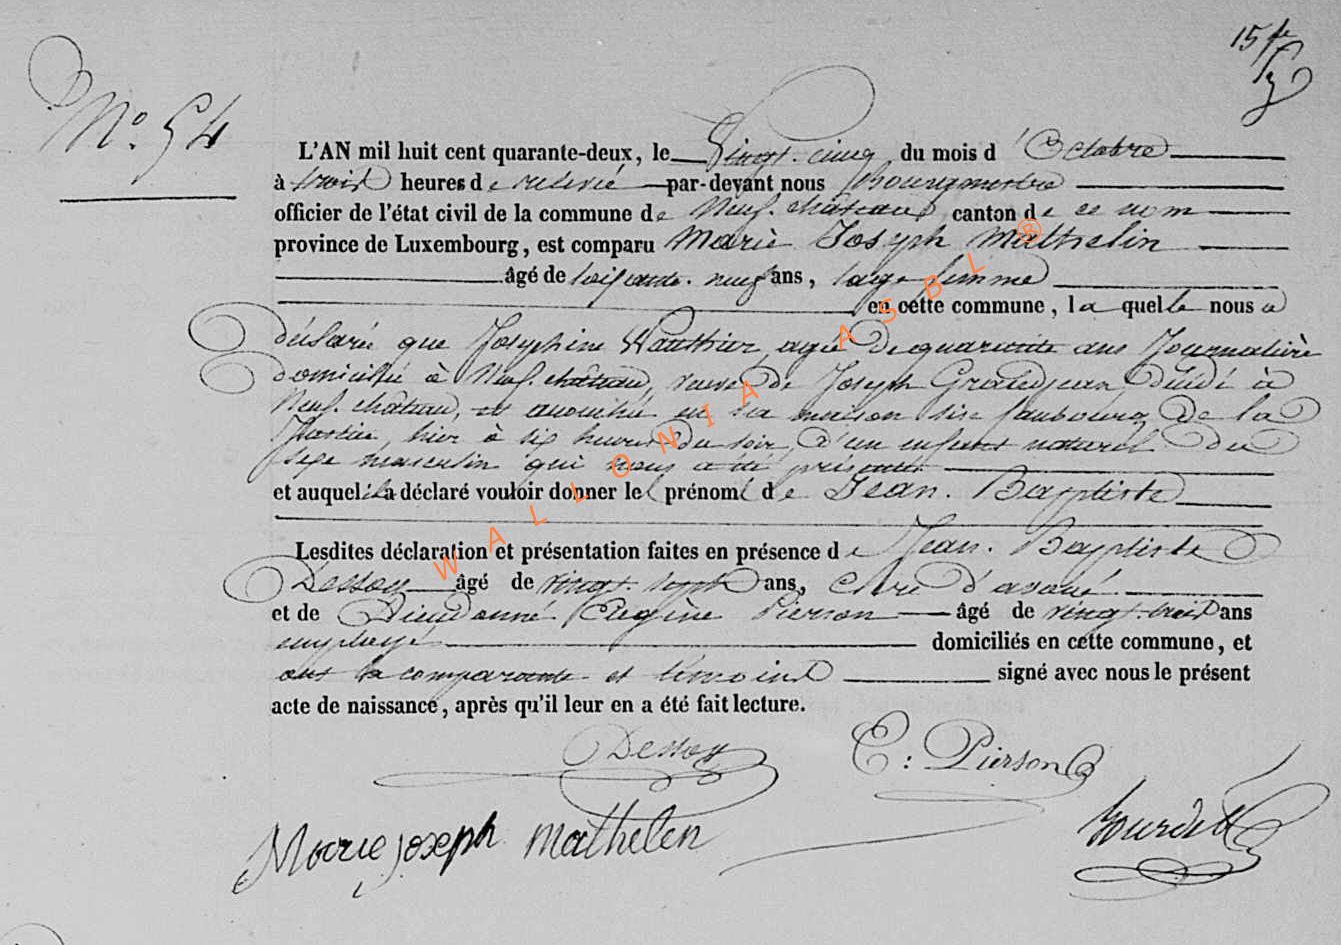 15 fr
N° 54
L'AN mil huit cent quarante-deux, le Vingt-cinq du mois d'Octobre
à trois heures de relevée par-devant nous Bourgmestre
officier de l'état civil de la commune de Neufchâteau, canton de ce nom
province de Luxembourg, est comparu Marie Joseph Mathelin
âgé de soixante-neuf ans, sage femme
en cette commune, laquelle nous a
déclaré que Josephine Wauthier, agée de quarante ans Journalière
domiciliée à Neufchâteau, veuve de Joseph Grandjean décédé à
Neufchâteau, est accouchée en sa maison sise faubourg de la
hier à six heures du soir, d'un enfant naturel du
sexe masculin qui nous a été présenté
et auquel ila déclaré vouloir donner le prénom de Jean-Baptiste
Lesdites déclaration et présentation faites en présence de Jean-Baptiste
Dessoy âgé de vingt-sept ans, clerc d'avoué
et de Dieudonné Eugène Pierson âgé de vingt-trois ans
employé domiciliés en cette commune, et
ont la comparante et témoins signé avec nous le présent
acte de naissance, après qu'il leur en a été fait lecture.
Dessoy E: Pierson
Marie joseph mathelen
WALLONIA ASBL ®